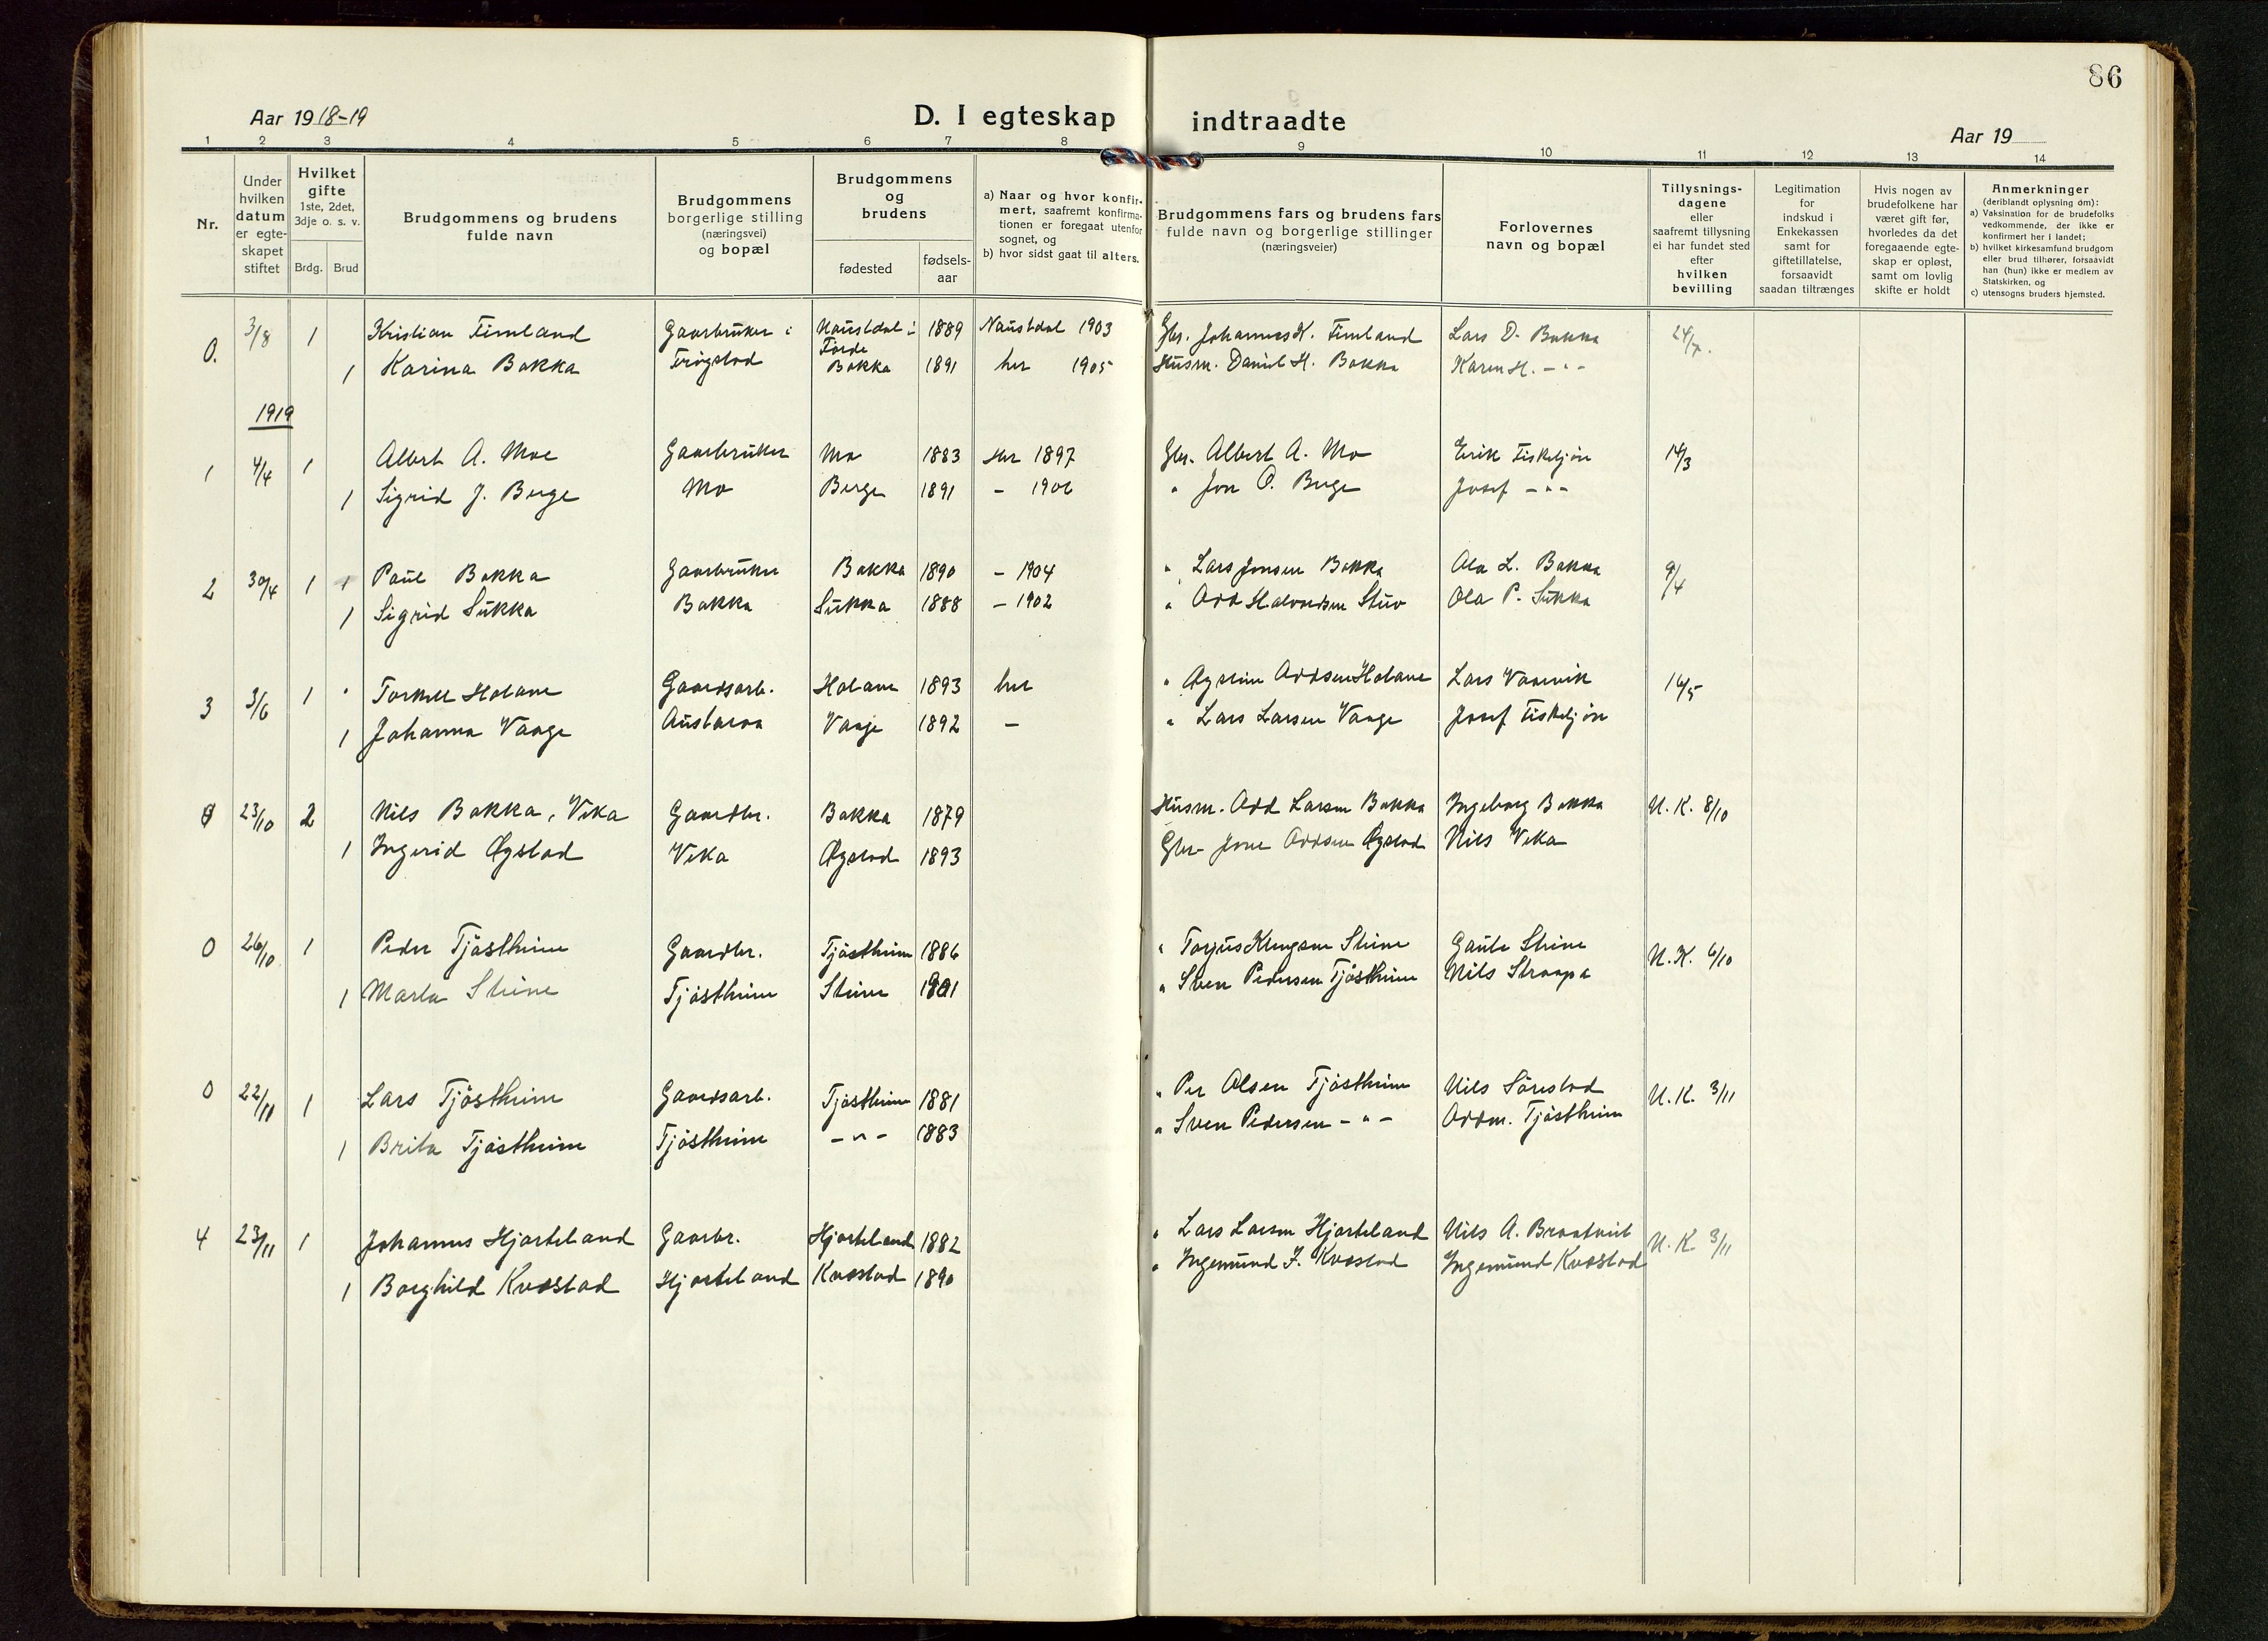 86
Aar 1918-19
D. I egteskap indtraadte
Aar 19
1 2 3 4 5 6 7 8 9 10 11 12 13 14
Nr.
Under hvilken datum er egteskapet stiftet
Hvilket gifte 1ste, 2det, 3dje o. s. v.
Brdg. Brud
Brudgommens og brudens fulde navn
Brudgommens borgerlige stilling (næringsvei) og bopæl
Brudgommens og brudens
fødested
fødsels-aar
a) Naar og hvor konfirmert, saafremt konfirmationen er foregaat utenfor sognet, og
b) hvor sidst gaat til alters.
Brudgommens fars og brudens fars fulde navn og borgerlige stillinger (næringsveier)
Forlovernes navn og bopæl
Tillysnings-dagene eller saafremt tillysning ei har fundet sted efter hvilken bevilling
Legitimation for indskud i Enkekassen samt for giftetillatelse, forsaavidt saadan tiltrænges
Hvis nogen av brudefolkene har været gift før, hvorledes da det foregaaende egteskap er opløst, samt om lovlig skifte er holdt
Anmerkninger (deriblandt oplysning om):
a) Vaksination for de brudefolks vedkommende, der ikke er konfirmert her i landet;
b) hvilket kirkesamfund brudgom eller brud tilhører, forsaavidt han (hun) ikke er medlem av Statskirken, og
c) utensogns bruders hjemsted.
0. 3/8 1 Kristian Timland Gaarbruker i Naustdal i Førde 1889 Naustdal 1903 Gbr. Johannes K. Timland Lars D. Bakka 24/7.
1 Karina Bakka Trøgstad Bakka 1891 her 1905 Husm. Daniel H. Bakka Karen H. - " -
1919
1 4/4 1 Albert A. Moe Gaarbruker Mo 1883 her 1897 Gbr. Albert A. Mo Erik Fiskeljøn 14/3
1 Sigrid J. Berge Mo Berge 1891 - 1906 " Jon O. Berge Josef - " -
2 30/4 1 1 Paul Bakka Gaarbruker Bakka 1890 - 1904 " Lars Jonsen Bakka Ola L. Bakka 9/4
1 Sigrid Sukka Bakka Sukka 1888 - 1902 " Odd Halvordsen Stuv Ola P. Sukka
3 3/6 1 " Torkell Halane Gaardsarb. Halane 1893 her " Øystein Oddsen Halane Lars Vaarvik 14/5
1 Johanna Vaage Austaroa Vaage 1892 - " Lars Larsen Vaage Josef Fiskeljøn
0 23/10 2 Nils Bakka, Vika Gaardbr. Bakka 1879 Husm. Odd Larsen Bakka Ingeborg Bakka U. K. 8/10
1 Ingerid Øgstad Vika Øgstad 1893 Gbr. Jone Oddsen Øgstad Nils Vika
0 26/10 1 Peder Tjøstheim Gaardbr. Tjøstheim 1886 " Torjus Klungsen Steine Gaute Steine U. K. 6/10
1 Marta Steine Tjøstheim Steine 1901 " Sven Pedersen Tjøstheim Nils Straapa
0 22/11 1 Lars Tjøstheim Gaardsarb. Tjøstheim 1881 " Per Olsen Tjøstheim Nils Sørestad U. K. 3/11
1 Brita Tjøstheim Tjøstheim - " - 1883 " Sven Pedersen - " - Oddm. Tjøstheim
4 23/11 1 Johannes Hjorteland Gaarbr. Hjorteland 1882 " Lars Larsen Hjorteland Nils A. Braatveit U. K. 3/11
1 Borghild Kvæstad Hjorteland Kvæstad 1890 " Ingemund J. Kvæstad Ingemund Kvæstad